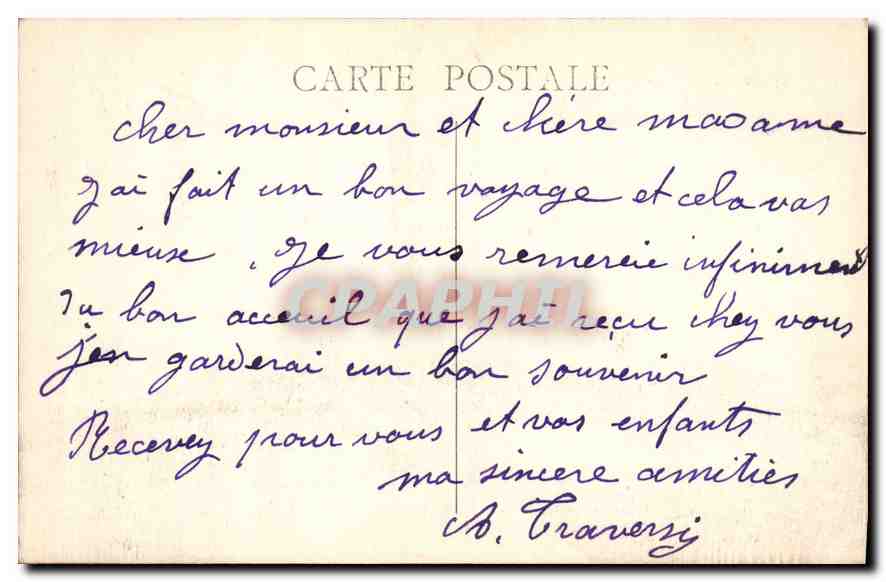 CARTE POSTALE
cher monsieur et chère madame
j'ai fait un bon voyage et cela vas
mieux, je vous remercie infiniment
du bon acceuil que j'ai reçu chez vous
j'en garderai un bon souvenir
Recevez pour vous et vos enfants
ma sincere amitiès
A. Traversy
CPAPHIL